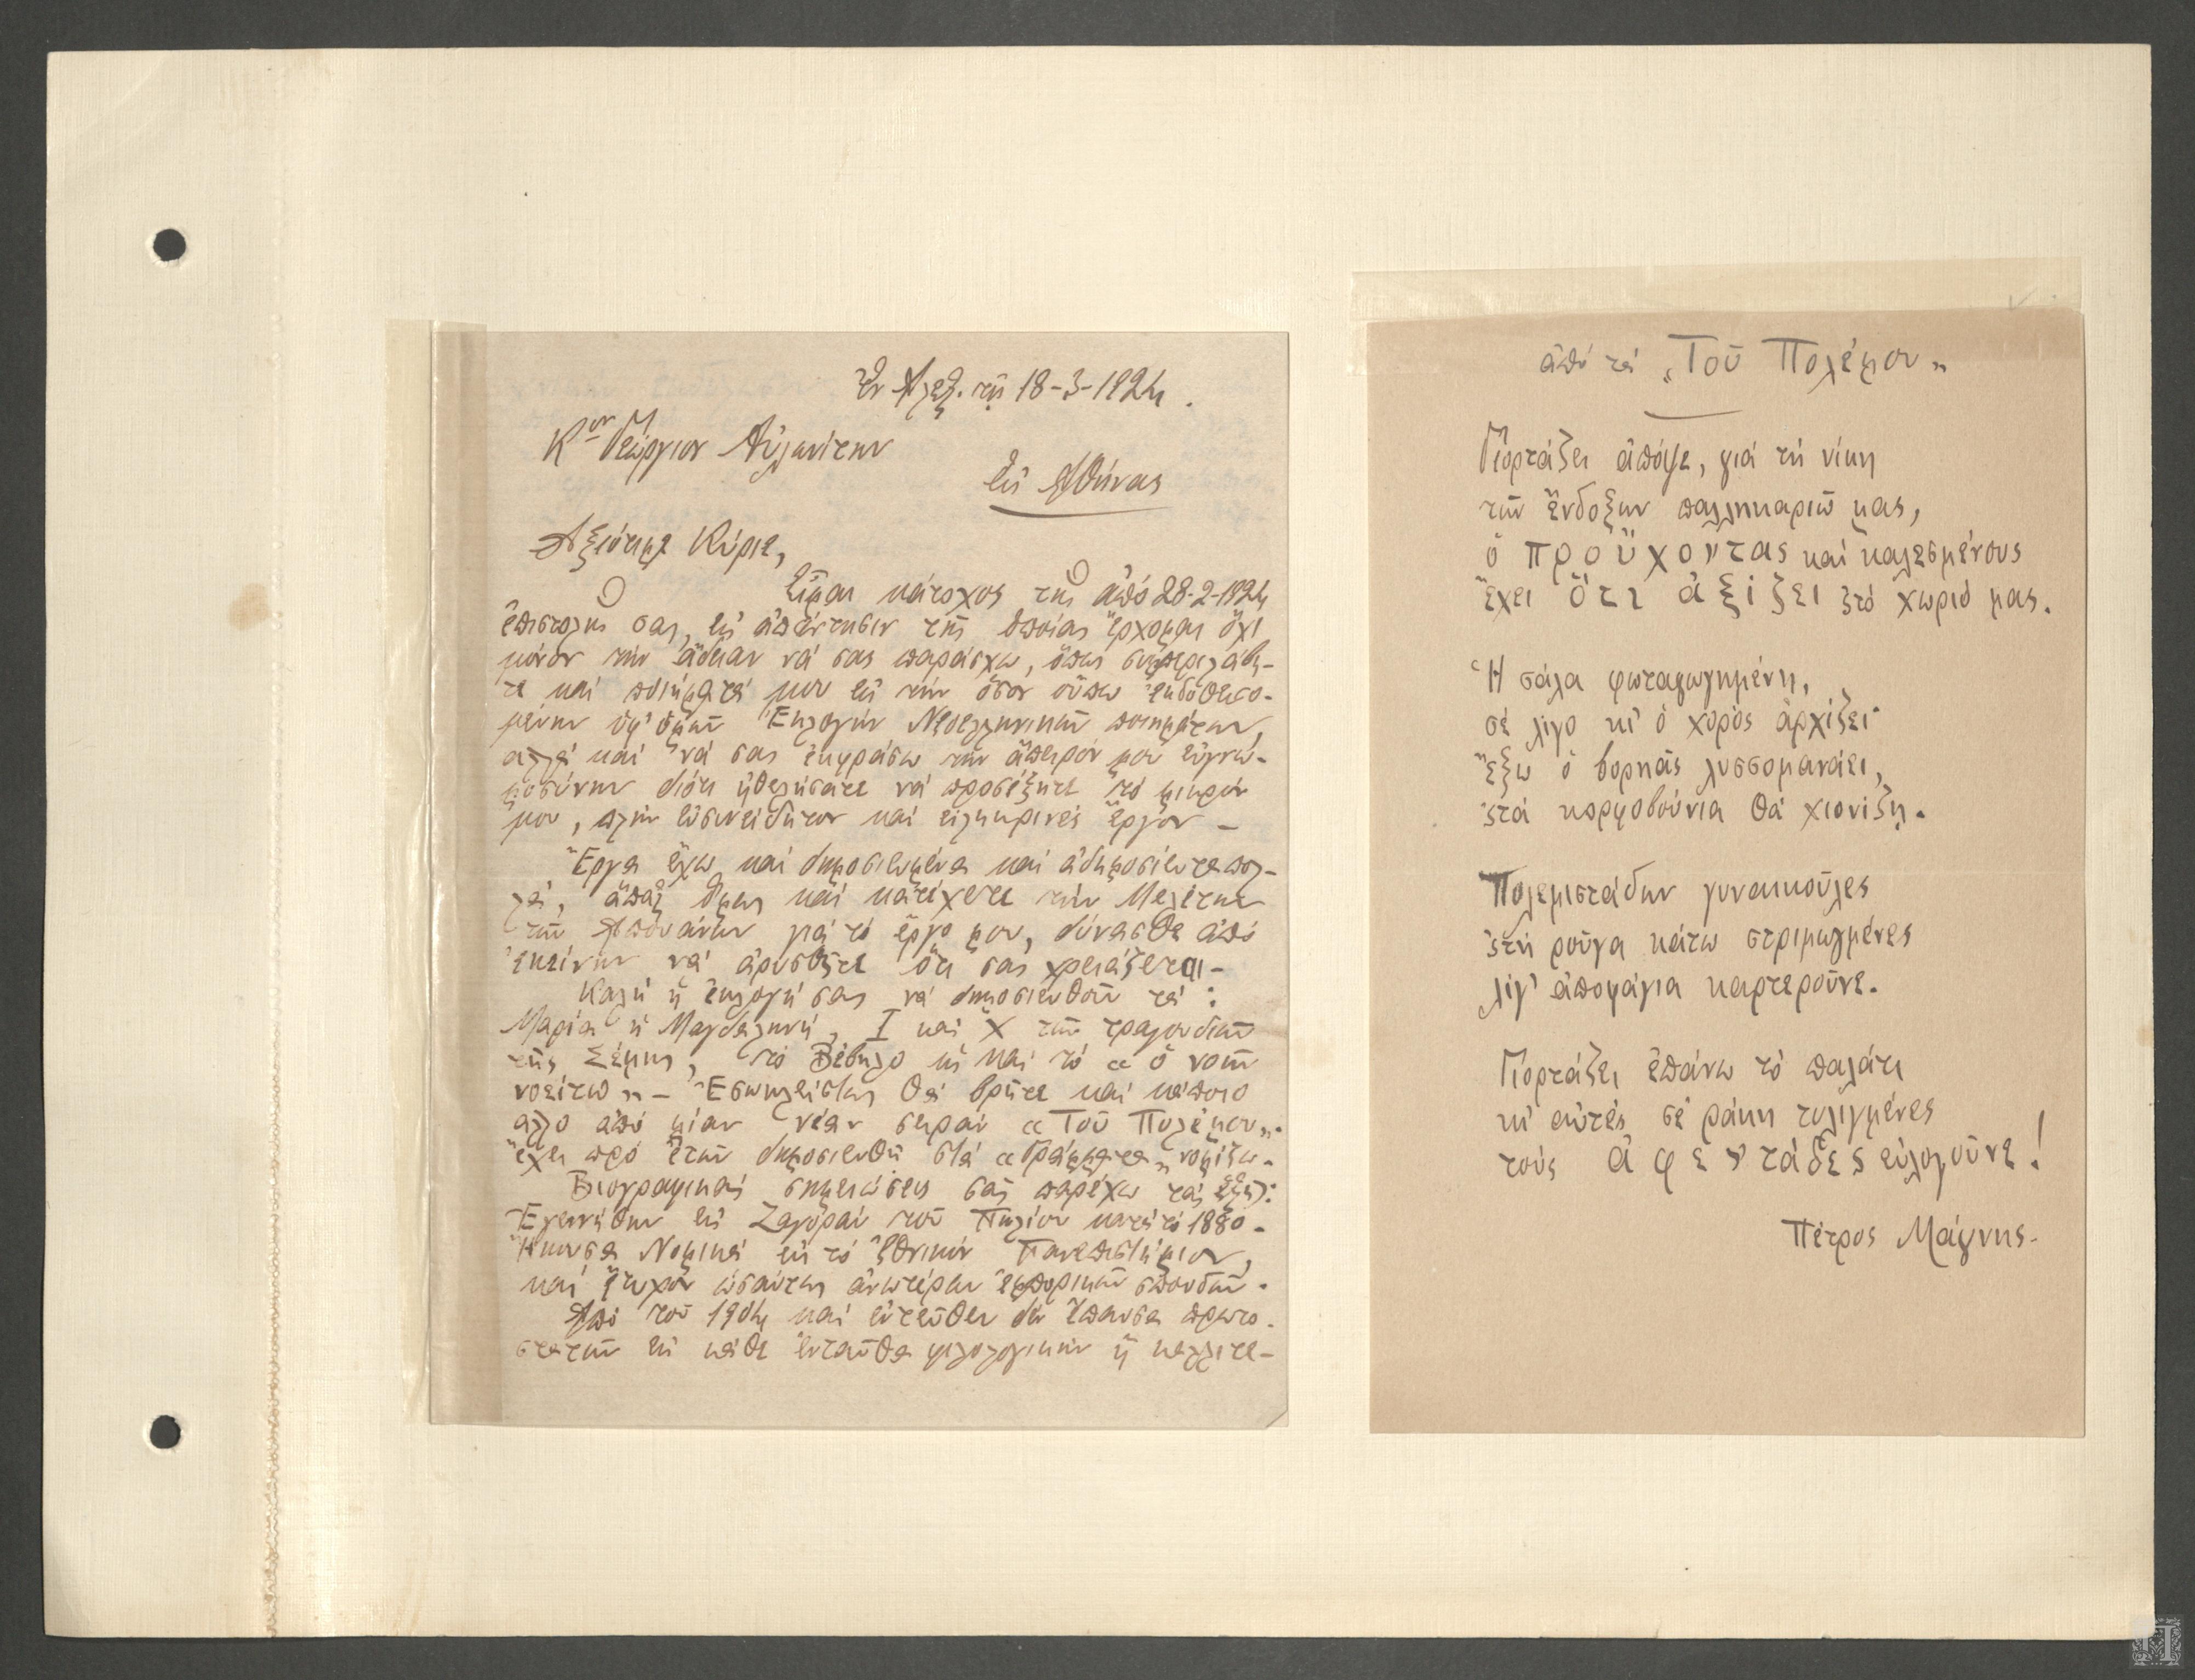 Ἐν Ἀλεξ. τῇ 18-3-1924.
Κον Γεώργιον Αὐλωνίτην
Εἰς Ἀθήνας
Ἀξιότιμε Κύριε,
Εἶμαι κάτοχος τῆς ἀπό 28-2-1924
ἐπιστολῆς σας, εἰς ἀπάντησιν τῆς ὁποίας ἔρχομαι ὄχι
μόνον τήν ἄδειαν νά σας παράσχω, ὅπως συμπεριλάβη-
τε καί ποιήματά μου εἰς τήν ὅσον οὔπω ἐκδοθεισο-
μένην ὑφ' ὑμῶν Ἐκλογήν Νεοελληνικῶν ποιημάτων,
αλλά καί νά σας ἐκφράσω τήν ἄπειρόν μου εὐγνω-
μοσύνην διότι ἠθελήσατε νά προσέξητε τό μικρόν
μου, πλήν εὐσυνείδητον καί εἰλικρινές ἔργον -
Ἔργα ἔχω καί δημοσιευμένα καί ἀδημοσίευτα πολ-
λά, ἅπαξ ὅμως καί κατέχετε τήν Μελέτην
τῶν Ἀπουάνων γιά τό ἔργο μου, δύνασθε ἀπό
ἐκείνην νά ἀρυσθῆτε ὅτι σας χρειάζεται -
Καλή ἡ ἐκλογή σας νά δημοσιευθοῦν τά :
Μαρία ἡ Μαγδαληνή, Ι καί Χ τῶν τραγουδιῶν
τῆς Σέμνης, τό Βέβηλο κῆ καί τό « ὁ νοῶν
νοείτω » - Ἐσωκλείστως θά βρῆτε καί κάποιο
αλλο ἀπό μίαν νέαν σειράν « Τοῦ Πολέμου ».
ἔχει πρό ἐτῶν δημοσιευθῆ στά « Γράμματα » νομίζω -
Βιογραφικάς σημειώσεις σᾶς παρέχω τάς ἑξῆς:
Ἐγεννήθην εἰς Ζαγοράν τοῦ Πηλίου κατά τό 1880 -
Ἤκουσα Νομικά εἰς τό Ἐθνικόν Πανεπιστήμιον,
καί ἔτυχον ὡσαύτως ἀνωτέρων ἐμπορικῶν σπουδῶν.
Ἀπό τοῦ 1904 καί ἐντεῦθεν δέν ἔπαυσα πρωτο-
στατῶν εἰς κάθε ἐνταῦθα φιλολογικήν ἤ καλλιτε-
ἀπό τά „Τοῦ Πολέμου„
Γιορτάζει ἀπόψε, γιά τή νίκη
τῶν ἔνδοξων παλληκαριῶ μας,
ὁ προὔχοντας καί καλεσμένους
ἔχει ὅτι ἀξίζει στό χωριό μας.
Ἡ σάλα φωταγωγημένη,
σέ λίγο κι' ὁ χορός ἀρχίζει·
ἔξω ὁ βορηᾶς λυσσομανάει,
στά κορφοβούνια θά χιονίζῃ.
Πολεμιστάδων γυναικοῦλες
στή ροῦγα κάτω στριμωγμένες
λίγ' ἀποφάγια καρτεροῦνε.
Γιορτάζει ἐπάνω τό παλάτι
κι' αὐτές σέ ράκη τυλιγμένες
τούς ἀφεντάδες εὐλογοῦνε!
Πέτρος Μάγνης -